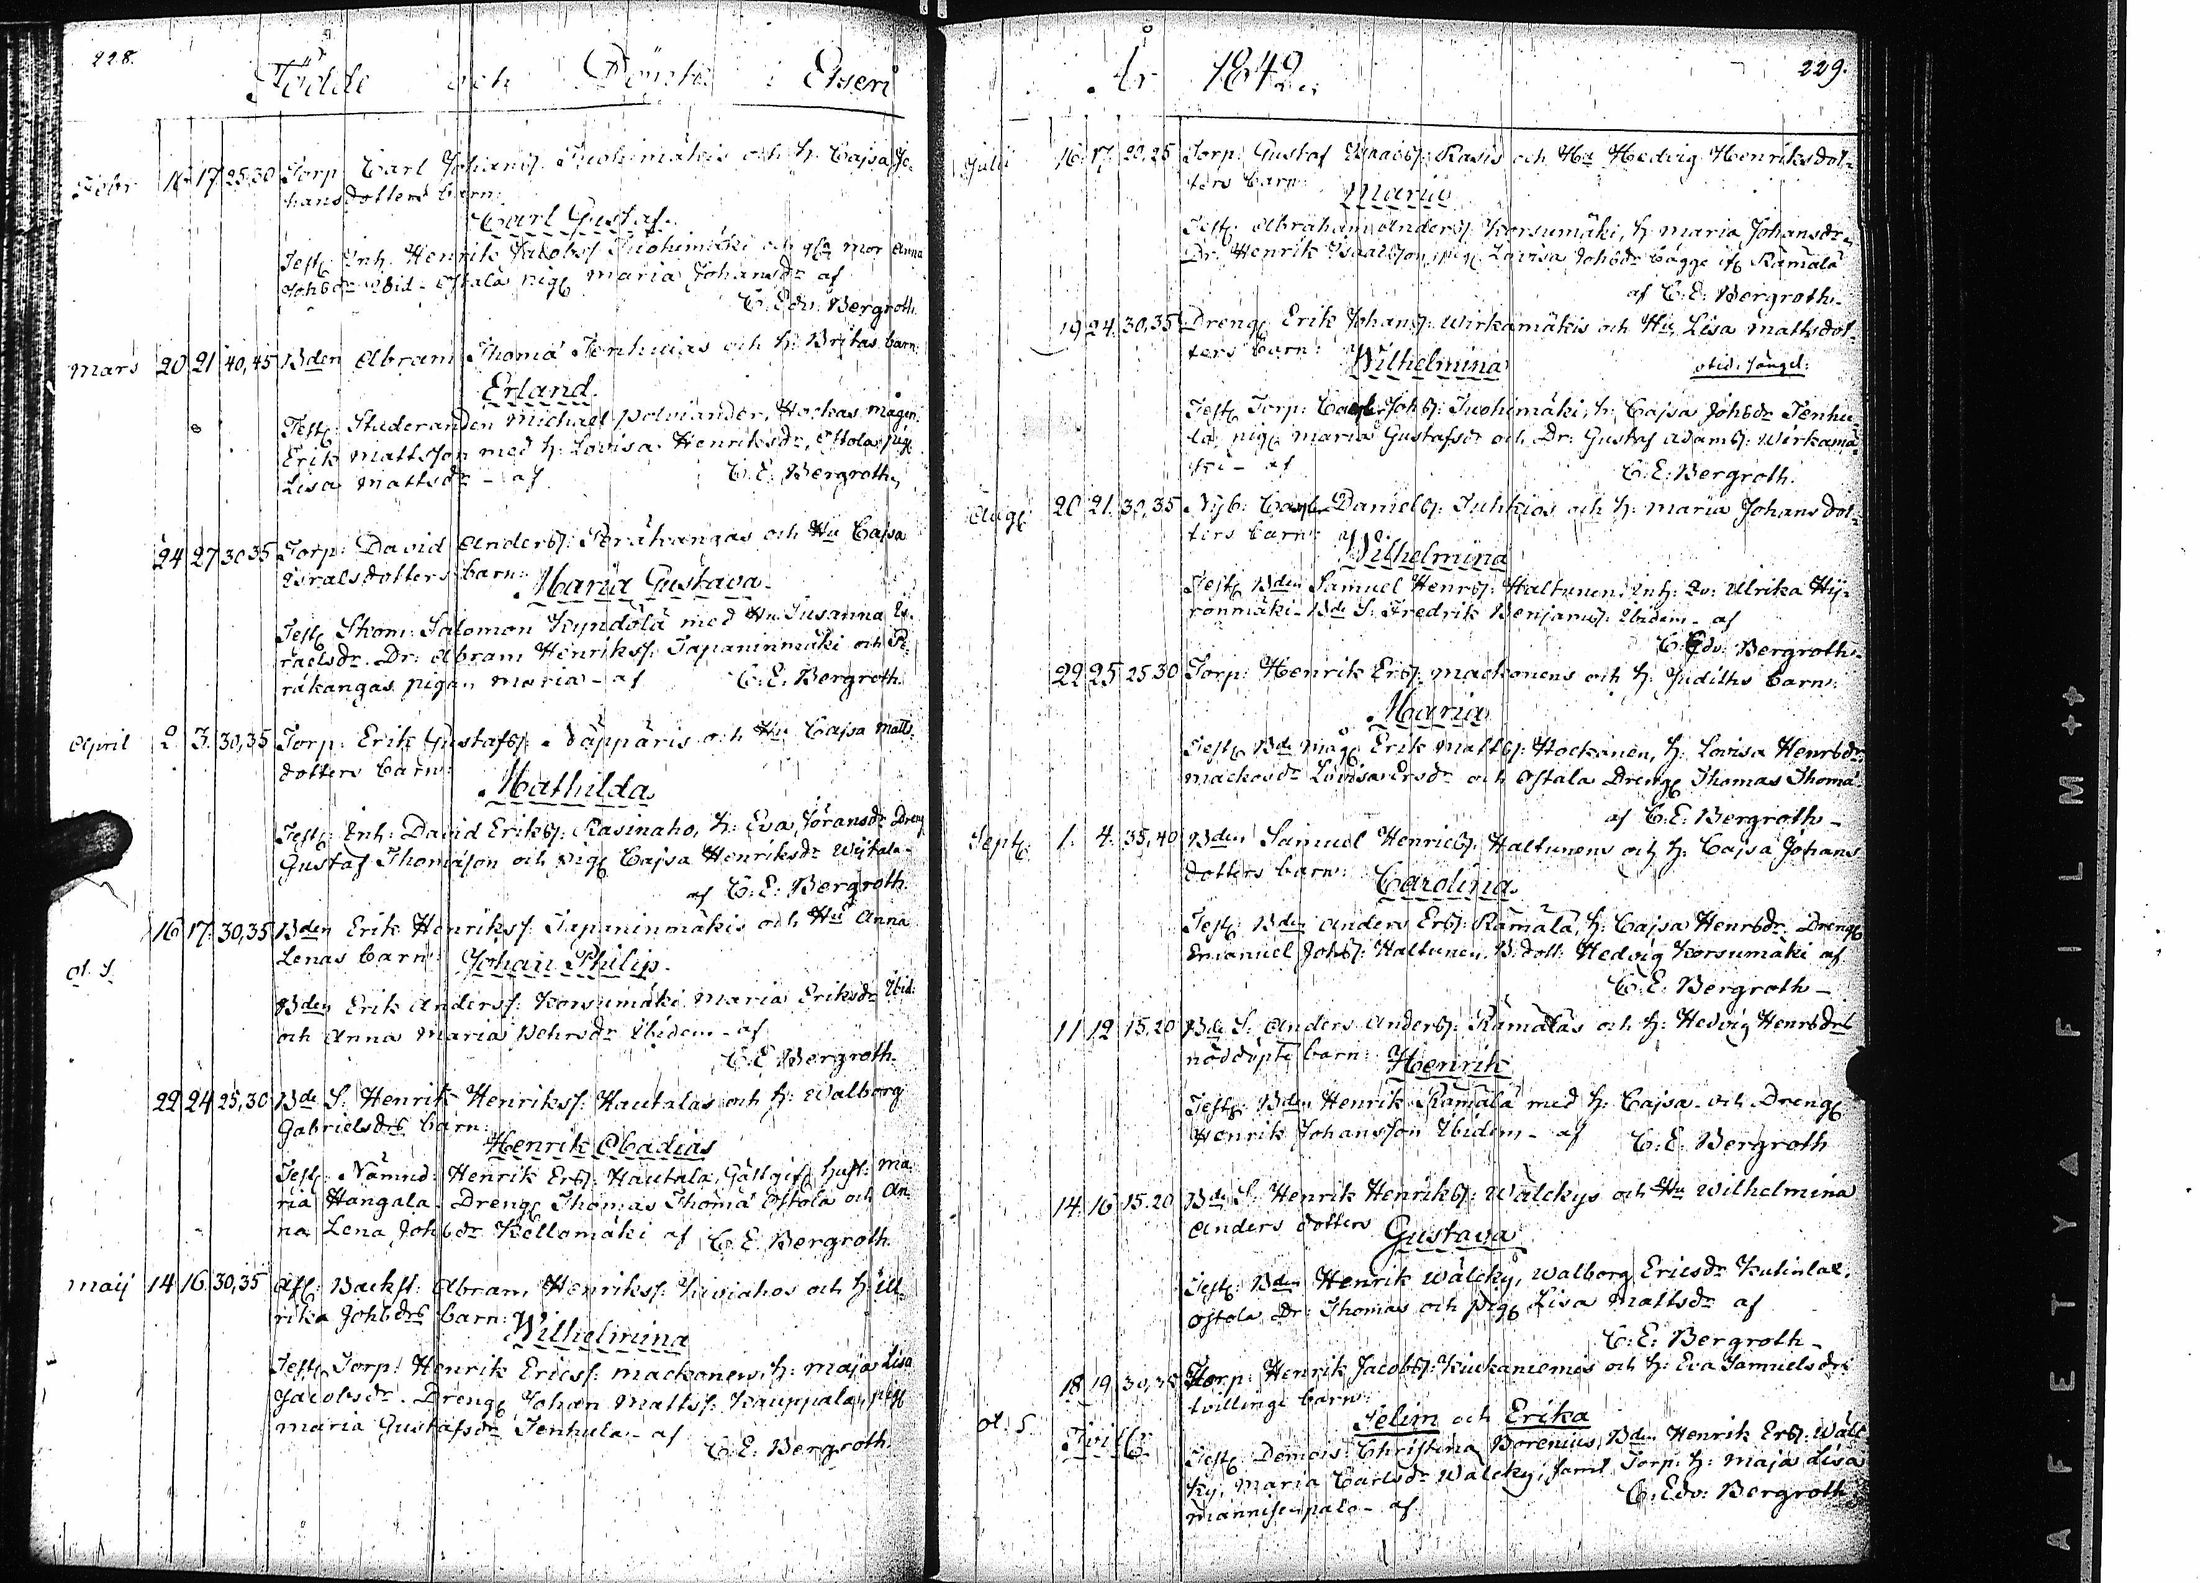 228.
Födde och Döpte i Etseri
Febr 16 17 25,30 Torp Carl Johans: Tuohimäkis och h. Cajsa Jo-
hansdotters barn:
Carl Gustaf.
Test: Inh. Henrik Jakobs: Tuohimäki och mor Anna
Johsdr ibid. Ostala pig: Maria Johansdr af
C. Edv. Bergroth.
Mars 20 21 40,45 Bden Abram Thomä Tenhuias och h: Britas barn:
Erland.
Test: Studeranden Michael Polviander, Hockas mågen
Erik Mattsson med h: Lovisa Henriksdr, Ostolas pig:
Lisa Mattsdr - af C: E: Bergroth
24 27 30 35 Torp: David Anders: Peräkangas och Hu Cajsa
Israelsdotters barn: Maria Gustava
Test: Skom: Salomon Kyndölä med Hu Susanna Is-
raelsdr. Dr: Abram Henriks: Tapaninmäki och Pe-
räkangas pigan Maria - af C: E. Bergroth.
April 2 3 30,35 Torp: Erik Gustafs: Näppäris och Hu Cajsa Matts-
dotters barn:
Mathilda
Test: Inh: David Eriks: Rasinaho, h: Eva Jöransdr Dreng
Gustaf Thomäson och pig: Cajsa Henriksdr Wijtala-
af C: E: Bergroth.
16 17 30,35 Bden Erik Henriks: Tapaninmäkis och Hu Anna
Lenas barn: Johan Philip.
ot. s.
Bden Erik Anders: Korsumäki Maria Eriksdr Ibid:
och Anna Maria Pehrsdr Ibidem - af
C: E Bergroth.
22 24 25,30 Bde S: Henrik Henriks: Hautalas och h: Walborg
Gabrielsdrs barn:
Henrik Obadias
Test: Nämnd: Henrik Ers: Hautala, Gästgif: hust: Ma-
ria Hangala. Dreng: Thomas Thomä Ostola och An-
na Lena Johsdr Kellomäki af C. E. Bergroth.
Maij 14 16 30,35 Afs: Backst: Abram Henriks: Kiviahos och h: Ul-
rika Johsdrs barn:
Wilhelmina
Test: Torp: Henrik Erics: Mackonen, h: Maja Lisa
Jacobsdr. Dreng: Johan Matts: Kauppala, pig:
Maria Gustafsdr Tenhula - af
C: E: Bergroth.
År 1842.
229.
Julii 16. 17. 20,25 Torp: Gustaf Isaacs: Rasis och Hu Hedvig Henriksdot-
ters barn:
Maria
Test: Abraham Anders: Korsumäki, h: Maria Johansdr
Dr: Henrik Isaacsson, pig: Lovisa Johsdr bägge if: Rämälä
af C: E: Bergroth.
19 24. 30,35 Dreng: Erik Johans: Wirkamäkis och Hu Lisa Mattsdot-
ters barn:
Wilhelmina
Test: Torp: Carl Johs: Tuohimäki, h: Cajsa Johsdr Tenhu-
la: pig: Maria Gustafsdr och Dr: Gustaf Adams: Wirkamä-
ki - af C: E: Bergroth.
Aug: 20 21. 30,35 Nyb: Carl Daniels: Tuhkios och h: Maria Johansdot-
ters barn:
Wilhelmina
Test: Bden Samuel Henrs: Haltunen, Inh: Ulrika Hy-
rönmäki - Bde S: Fredrik Benjams: Ibidem - af
C. Edv: Bergroth.
22 25 25 30 Torp: Henrik Ers: Mackonens och h: Judiths barn:
Maria
Test: Bde måg: Erik Matts: Hockanen, h: Lovisa Henrsdr
Mackosdr Lovisa Ersdr och Ostala Dreng: Thomas Thomä
af C: E. Bergroth -
Sept: 1. 4. 35,40 Bden Samuel Henrics: Haltunens och h: Cajsa Johans
dotters barn:
Carolina
Test: Bden Anders Ers: Rämälä, h: Cajsa Henrsdr. Dreng:
Emanuel Johs: Haltunen, B: dott: Hedvig Korsumäki af
C: E: Bergroth -
11 12 15,20 Bde S: Anders Anders: Rämäläs och h: Hedvig Henrsdrs
nöddöpte barn: Henrik
Test: Bden Henrik Rämälä med h: Cajsa och Dreng:
Henrik Johansson Ibidem - af C: E: Bergroth
14. 16 15. 20 Bde S: Henrik Henriks: Wälckys och Hu Wilhelmina
Anders dotters Gustava
Test: Bden Henrik Wälcky, Walborg Ericsdr
Ostola, Dr: Thomas och pig: Lisa Mattsdr af
C: E: Bergroth -
18 19 30,35 Torp: Henrik Jacobs: Kiukaniemis och h: Eva Samuelsdrs
tvillinge barn:
ot. s. Tvill:
Selim och Erika
Test: Demois: Christina Borenius, Bden Henrik Ers: Wäl-
ky, Maria Carlsdr Wälcky, samt Torp: h: Maja Lisa
Männistenpalo - af C: Edv: Bergroth
AFETYAFILM